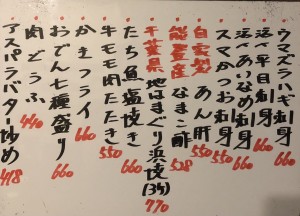 ウマズラハギ刺身 660
活〆平目刺身 660
活〆あいなめ刺身 660
スマかつお刺身 550
自家製 あん肝 550
能登産 なまこ酢 528
千葉県 地はまぐり浜焼(3ケ) 770
たち魚塩焼き 660
牛モモ肉たたき 660
かきフライ 660
おでん七種盛り 660
肉どうふ 440
アスパラバター炒め 418